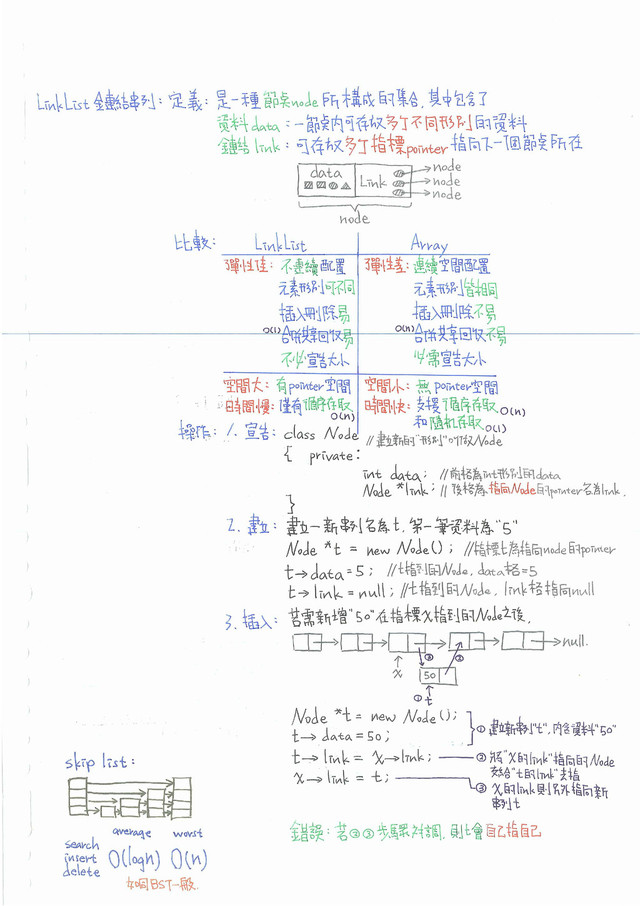 LinkList 鏈結串列：定義：是一種節点node所構成的集合，其中包含了
資料data：一節点內可存放多个不同形別的資料
鏈結link：可存放多个指標pointer指向下一個節点所在
data
Link
node
node
node
node
比較：
LinkList
Array
彈性佳：不連續配置
元素形別可不同
插入刪除易
O(1)
合併共享回收易
不必宣告大小
彈性差：連續空間配置
元素形別皆相同
插入刪除不易
O(n)
合併共享回收不易
必需宣告大小
空間大：有pointer空間
時間慢：僅有循序存取
O(n)
空間小：無pointer空間
時間快：支援循序存取 O(n)
和隨机存取 O(1)
操作：1. 宣告：class Node //建立新的"形別"叫做Node
{ private:
int data; //前格為int形別的data
Node *link; //後格為指向Node的pointer名為link.
}
2. 建立：建立一新串列名為t, 第一筆資料為"5"
Node *t = new Node(); //指標t為指向node的pointer
t→data=5; //t指到的Node, data格=5
t→link = null; //t指到的Node, link格指向null
3. 插入：若需新增"50"在指標x指到的Node之後,
null.
x
③
②
50
① t
Node *t = new Node();
t→data=50;
① 建立新串列"t", 內含資料"50"
t→link = x→link;
② 將"x的link"指向的Node
交給"t的link"去指
x→link = t;
③ x的link則另外指向新
串列t
錯誤：若②③步驟對調, 則t會自己指自己
skip list:
average
worst
search
insert
delete
O(logn)
O(n)
如同BST一般.